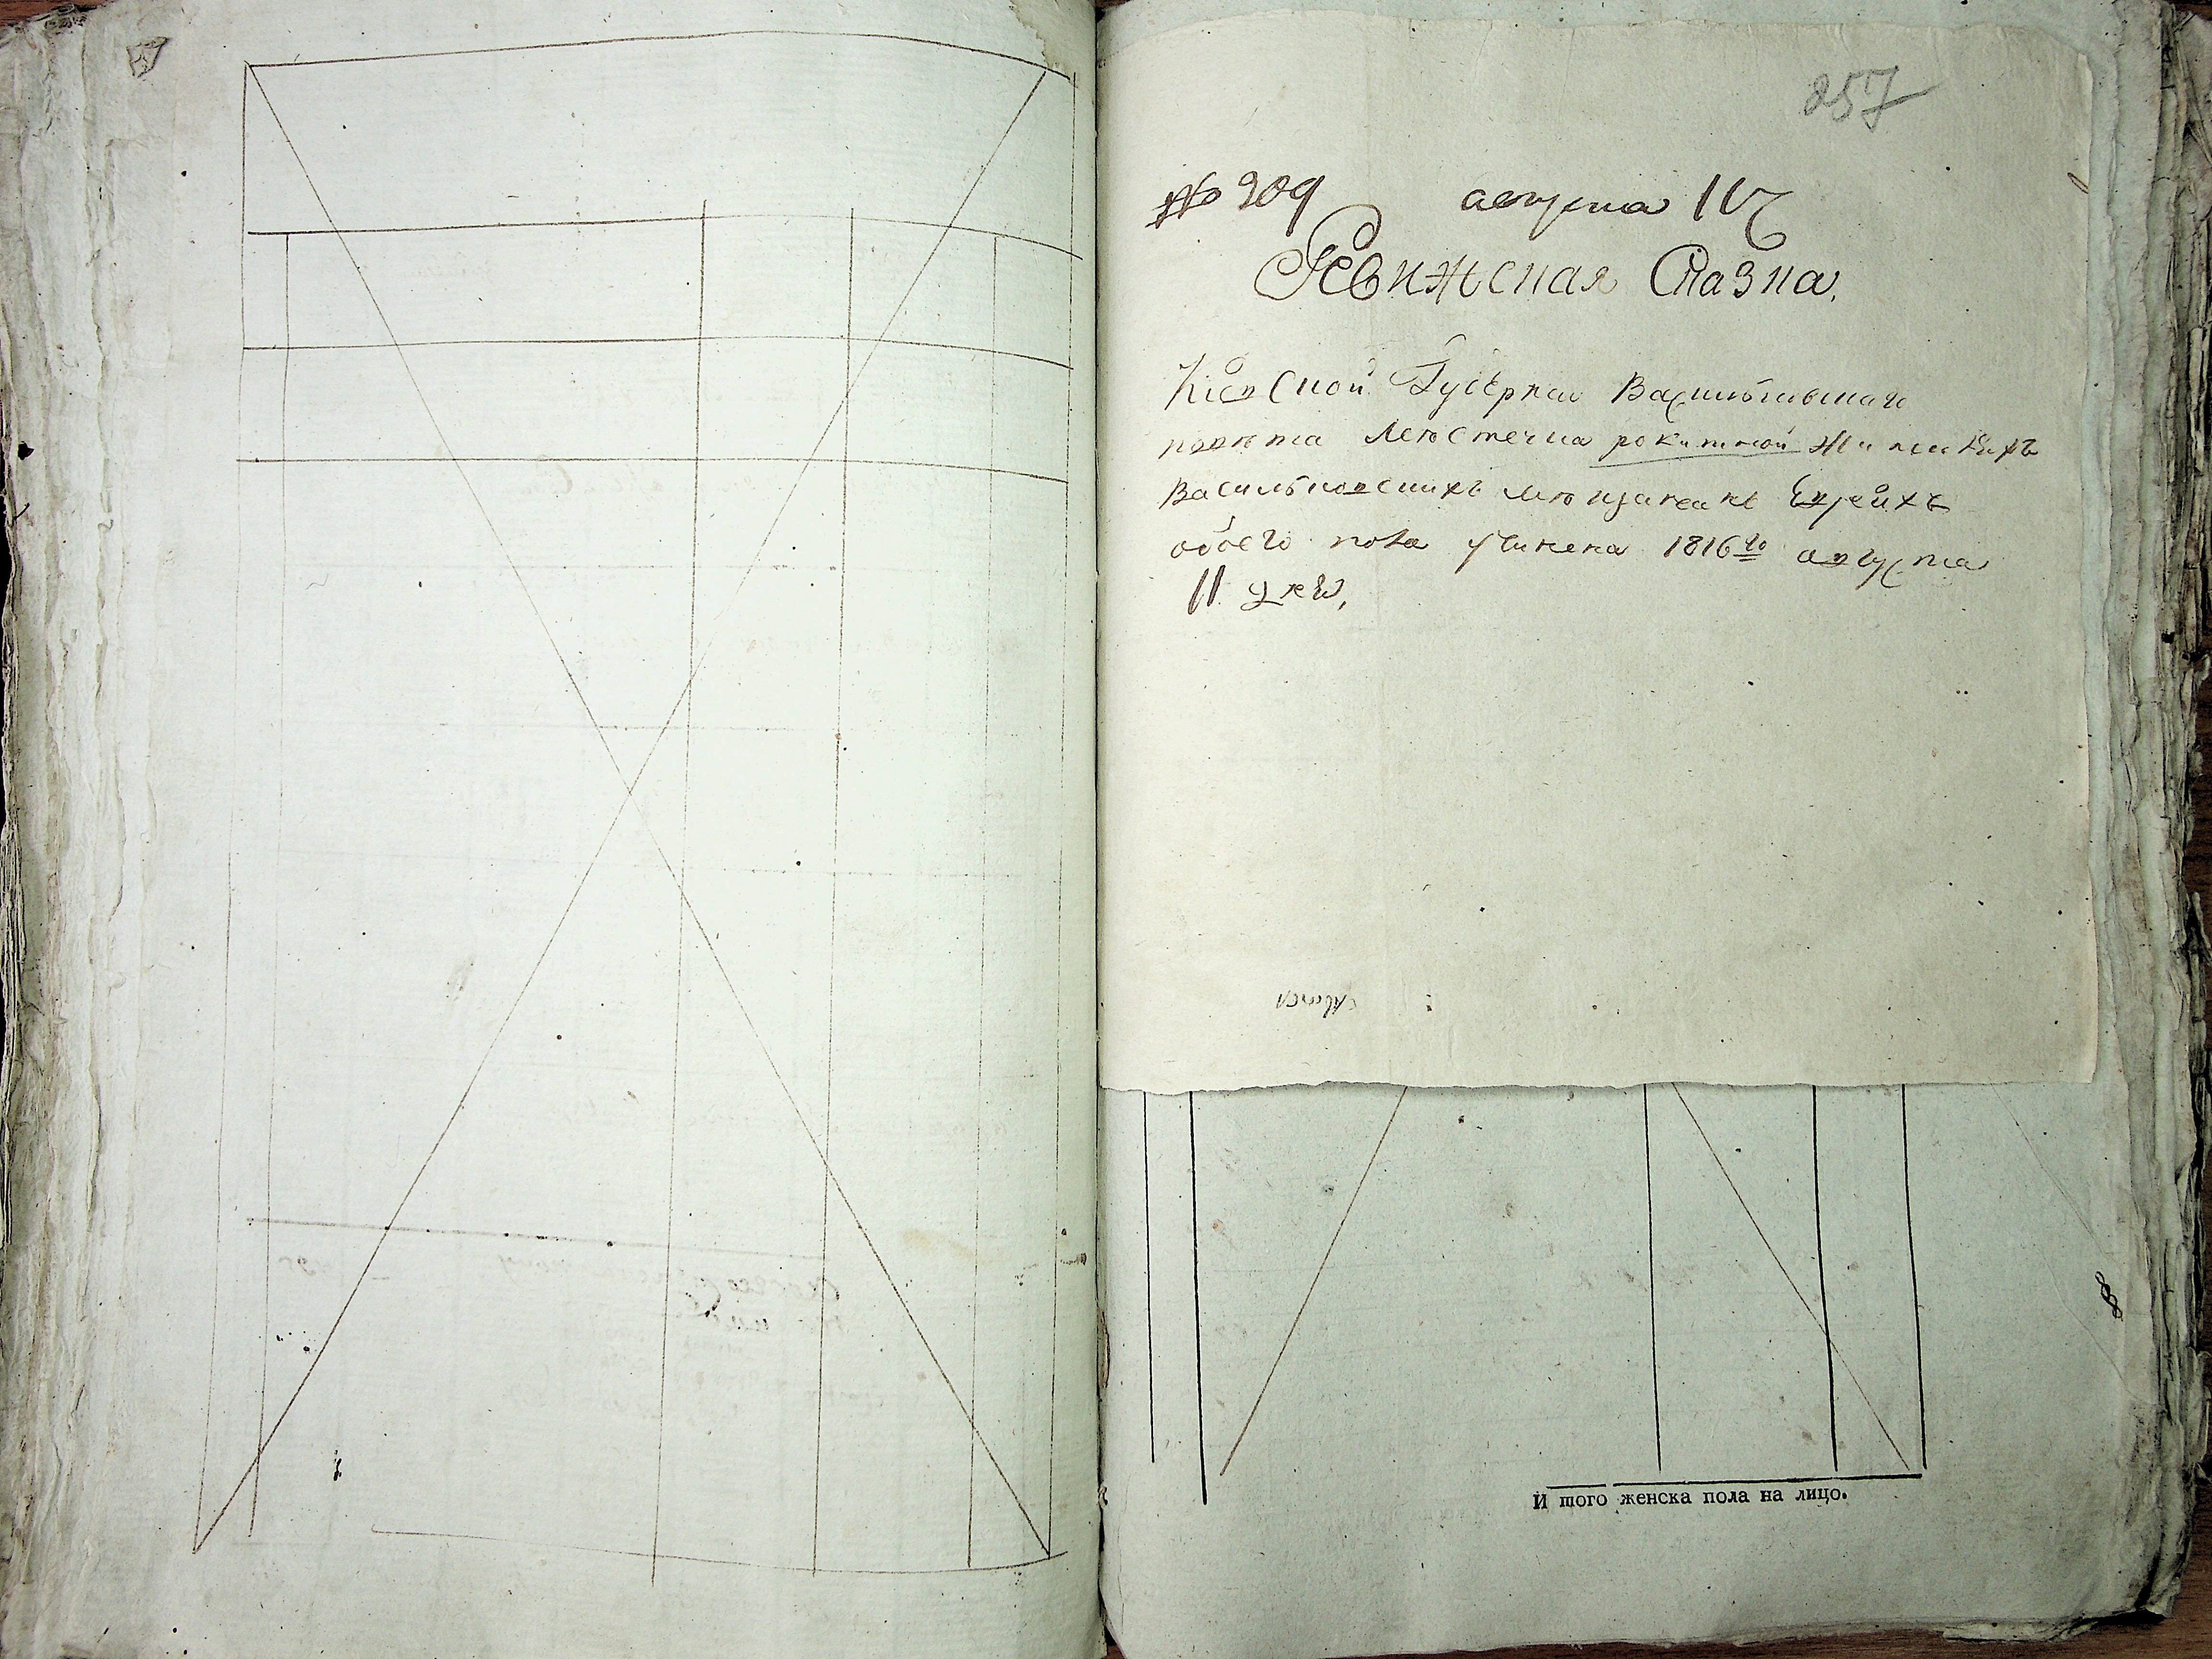 257
№ 209 августа 11г
Ревижская Сказка,
Кіевской Губерніи Васильковскаго
повѣта Мѣстечка рокитной Жителей
Васильковскихъ мѣщанъ Еврейхъ
обоего пола учинена 1816го августа
11 дня,
И того женска пола на лицо.